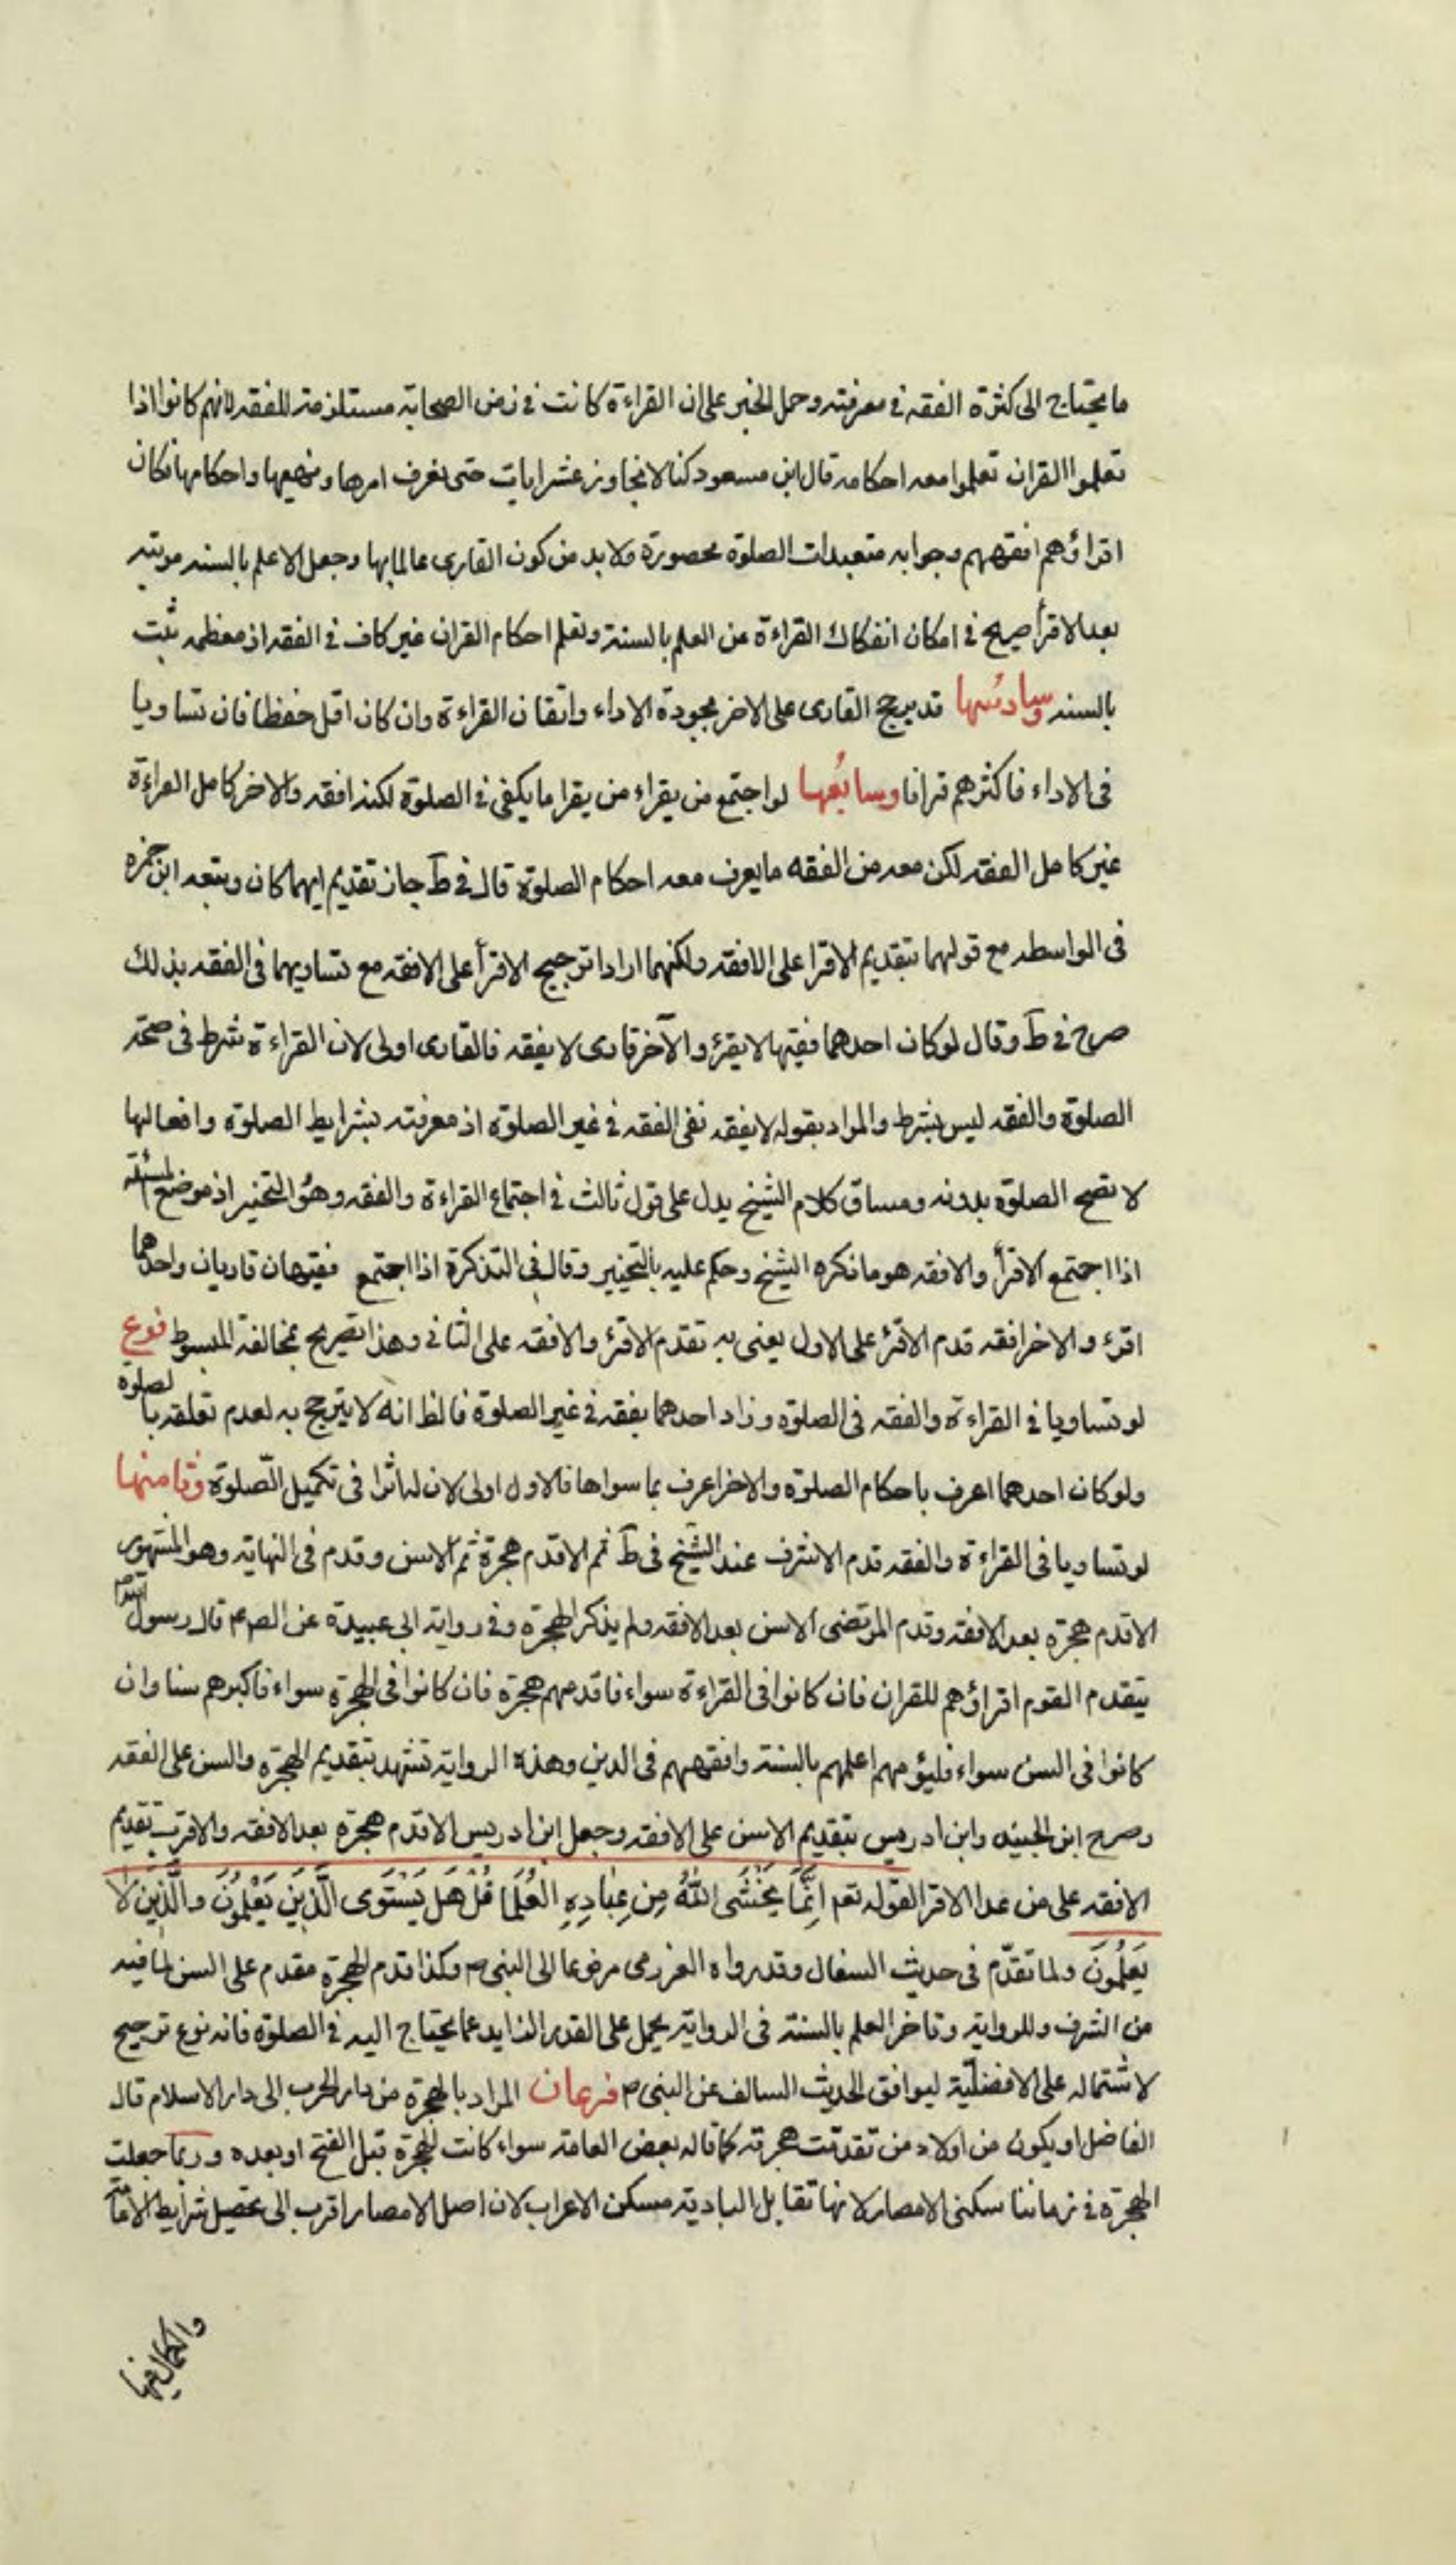 ما يحتاج الى كثرة الفقه في معرفته وحمل الخبر على ان القراءة كانت في زمن الصحابة مستلزمة للفقه لانهم كانوا اذا
تعلموا القران تعلموا معه احكامه قال ابن مسعود كنا لا نتجاوز عشر ايات حتى نعرف امرها ونهيها واحكامها فكان
اقراؤهم افقههم وجوابه متعبدات الصلوة محصورة ولا بد من كون القارى عالما بها وجعل الاعلم بالسنه مرتبه
بعد الاقرأ صريح في امكان انفكاك القراءة عن العلم بالسنة وتعلم احكام القران غير كاف في الفقه اذ معظمه ثبت
بالسنه وسادسها قد يرجح القارى على الاخر بجودة الاداء واتقان القراءة وان كان اقل حفظا فان تساويا
فى الاداء فاكثرهم قرانا وسابعها لو اجتمع من يقراء من يقرا ما يكفى في الصلوة لكنه افقه والاخر كامل القراءة
غير كامل الفقه لكن معه من الفقه ما يعرف معه احكام الصلوة قال في ط جاز تقديم ايهما كان وتبعه ابن حمزه
فى الواسطه مع قولهما بتقديم الاقرا على الافقه ولكنهما ارادا ترجيح الاقرأ على الافقه مع تساويهما فى الفقه بذلك
صرح في ط وقال لو كان احدهما فقيها لا يقرؤ والآخر قارى لا يفقه فالقارى اولى لان القراءة شرط فى صحة
الصلوة والفقه ليس بشرط والمراد بقوله لا يفقه نفى الفقه في غير الصلوة اذ معرفته بشرايط الصلوة وافعالها
لا تصح الصلوة بدونه ومساق كلام الشيخ يدل على قول ثالث في اجتماع القراءة والفقه وهو التخيير اذ موضع المسئلة
اذا اجتمع الاقرأ والافقه هو ما ذكره الشيخ وحكم عليه بالتخيير وقال فى التذكرة اذا اجتمع فقيهان قاريان واحدهما
اقرء والاخر افقه قدم الاقرء على الاول يعنى به تقدم الاقرء والافقه على الثاني وهذا تصريح بمخالفة المبسوط فرع
لو تساويا في القراءة والفقه فى الصلوة وزاد احدهما بفقه في غير الصلوة فالظ انه لا يترجح به لعدم تعلقه بالصلوة
ولو كان احدهما اعرف باحكام الصلوة والاخر اعرف بما سواها فالاول اولى لان له اثرا فى تكميل الصّلوة وثامنها
لو تساويا فى القراءة والفقه قدم الاشرف عند الشيخ فى ط ثم الاقدم هجرة ثم الاسن وقدم فى النهاية وهو المشهور
الاقدم هجرة بعد الافقه وقدم المرتضى الاسن بعد الافقه ولم يذكر الهجرة وفي رواية ابى عبيدة عن الص ع قال رسول الله ص
يتقدم القوم اقراؤهم للقران فان كانوا فى القراءة سواء فاقدمهم هجرة فان كانوا فى الهجرة سواء فاكبرهم سنا وان
كانوا فى السن سواء فليؤمهم اعلمهم بالسنة وافقههم فى الدين وهذه الرواية تشهد بتقديم الهجرة والسن على الفقه
وصرح ابن الجنيد وابن ادريس بتقديم الاسن على الافقه وجعل ابن ادريس الاقدم هجرة بعد الافقه والاقرب تقديم
الافقه على من عدا الاقرا لقوله تعم اِنَّمَا يَخْشَى اللهَ مِن عِبَادِهِ العُلَمَا قُلْ هَل يَسْتَوى الَّذِينَ يَعْلَمُونَ والَّذِينَ لَا
يَعْلَمُونَ ولما تقدّم فى حديث السفال وقد رواه العرزمى مرفوعا الى النبى ص وكذا قدم الهجرة مقدم على السن لما فيه
من الشرف وللرواية وتاخر العلم بالسنة فى الرواية يحمل على القدر الزايد عما يحتاج اليه في الصلوة فانه نوع ترجيح
لاشتماله على الافضلية ليوافق الحديث السالف عن النبى ص فرعان المراد بالهجرة من دار الحرب الى دار الاسلام قال
الفاضل او يكون من اولاد من تقدمت هجرته كما قاله بعض العامة سواء كانت الهجرة قبل الفتح او بعده وربما جعلت
الهجرة في زماننا سكنى الامصار لانها تقابل البادية مسكن الاعراب لان اهل الامصار اقرب الى تحصيل شرايط الامامة
والكمال فيها